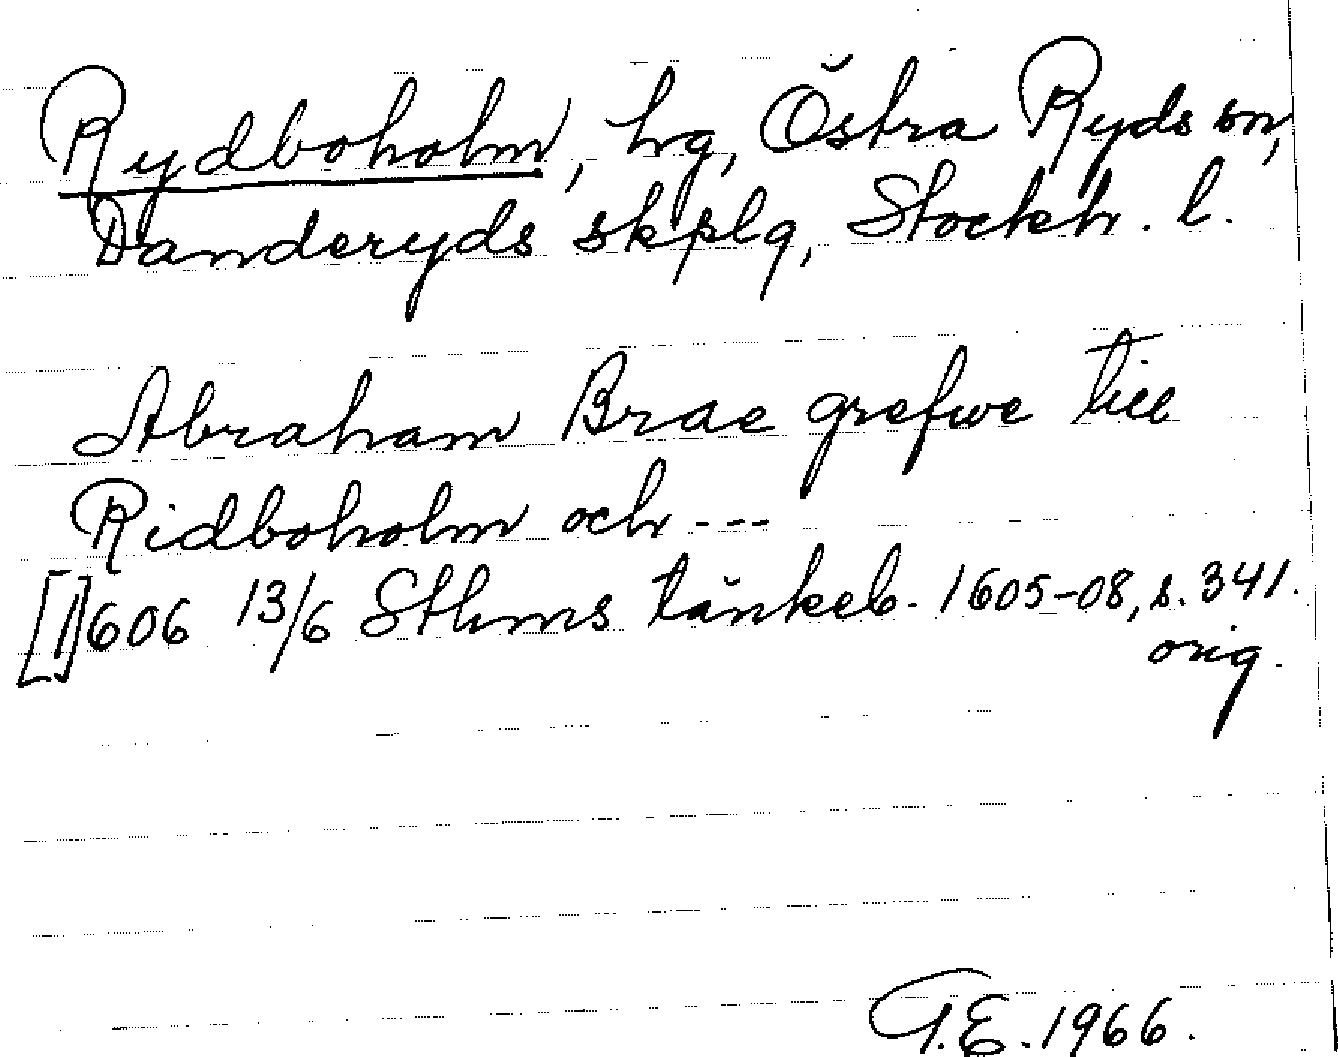 Rydboholm, hg, Östra Ryds sn,
Danderyds skplg, Stockh. l.
Abraham Brae grefwe till
Ridboholm och ---
[1]606 13/6 Sthms tänkeb. 1605-08, s. 341.
orig.
G.E. 1966.